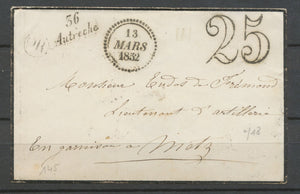 36
Autrèche
13
MARS
1852
25
Monsieur Eudes de Frémond
Lieutenant d'artillerie
En garnison à Metz